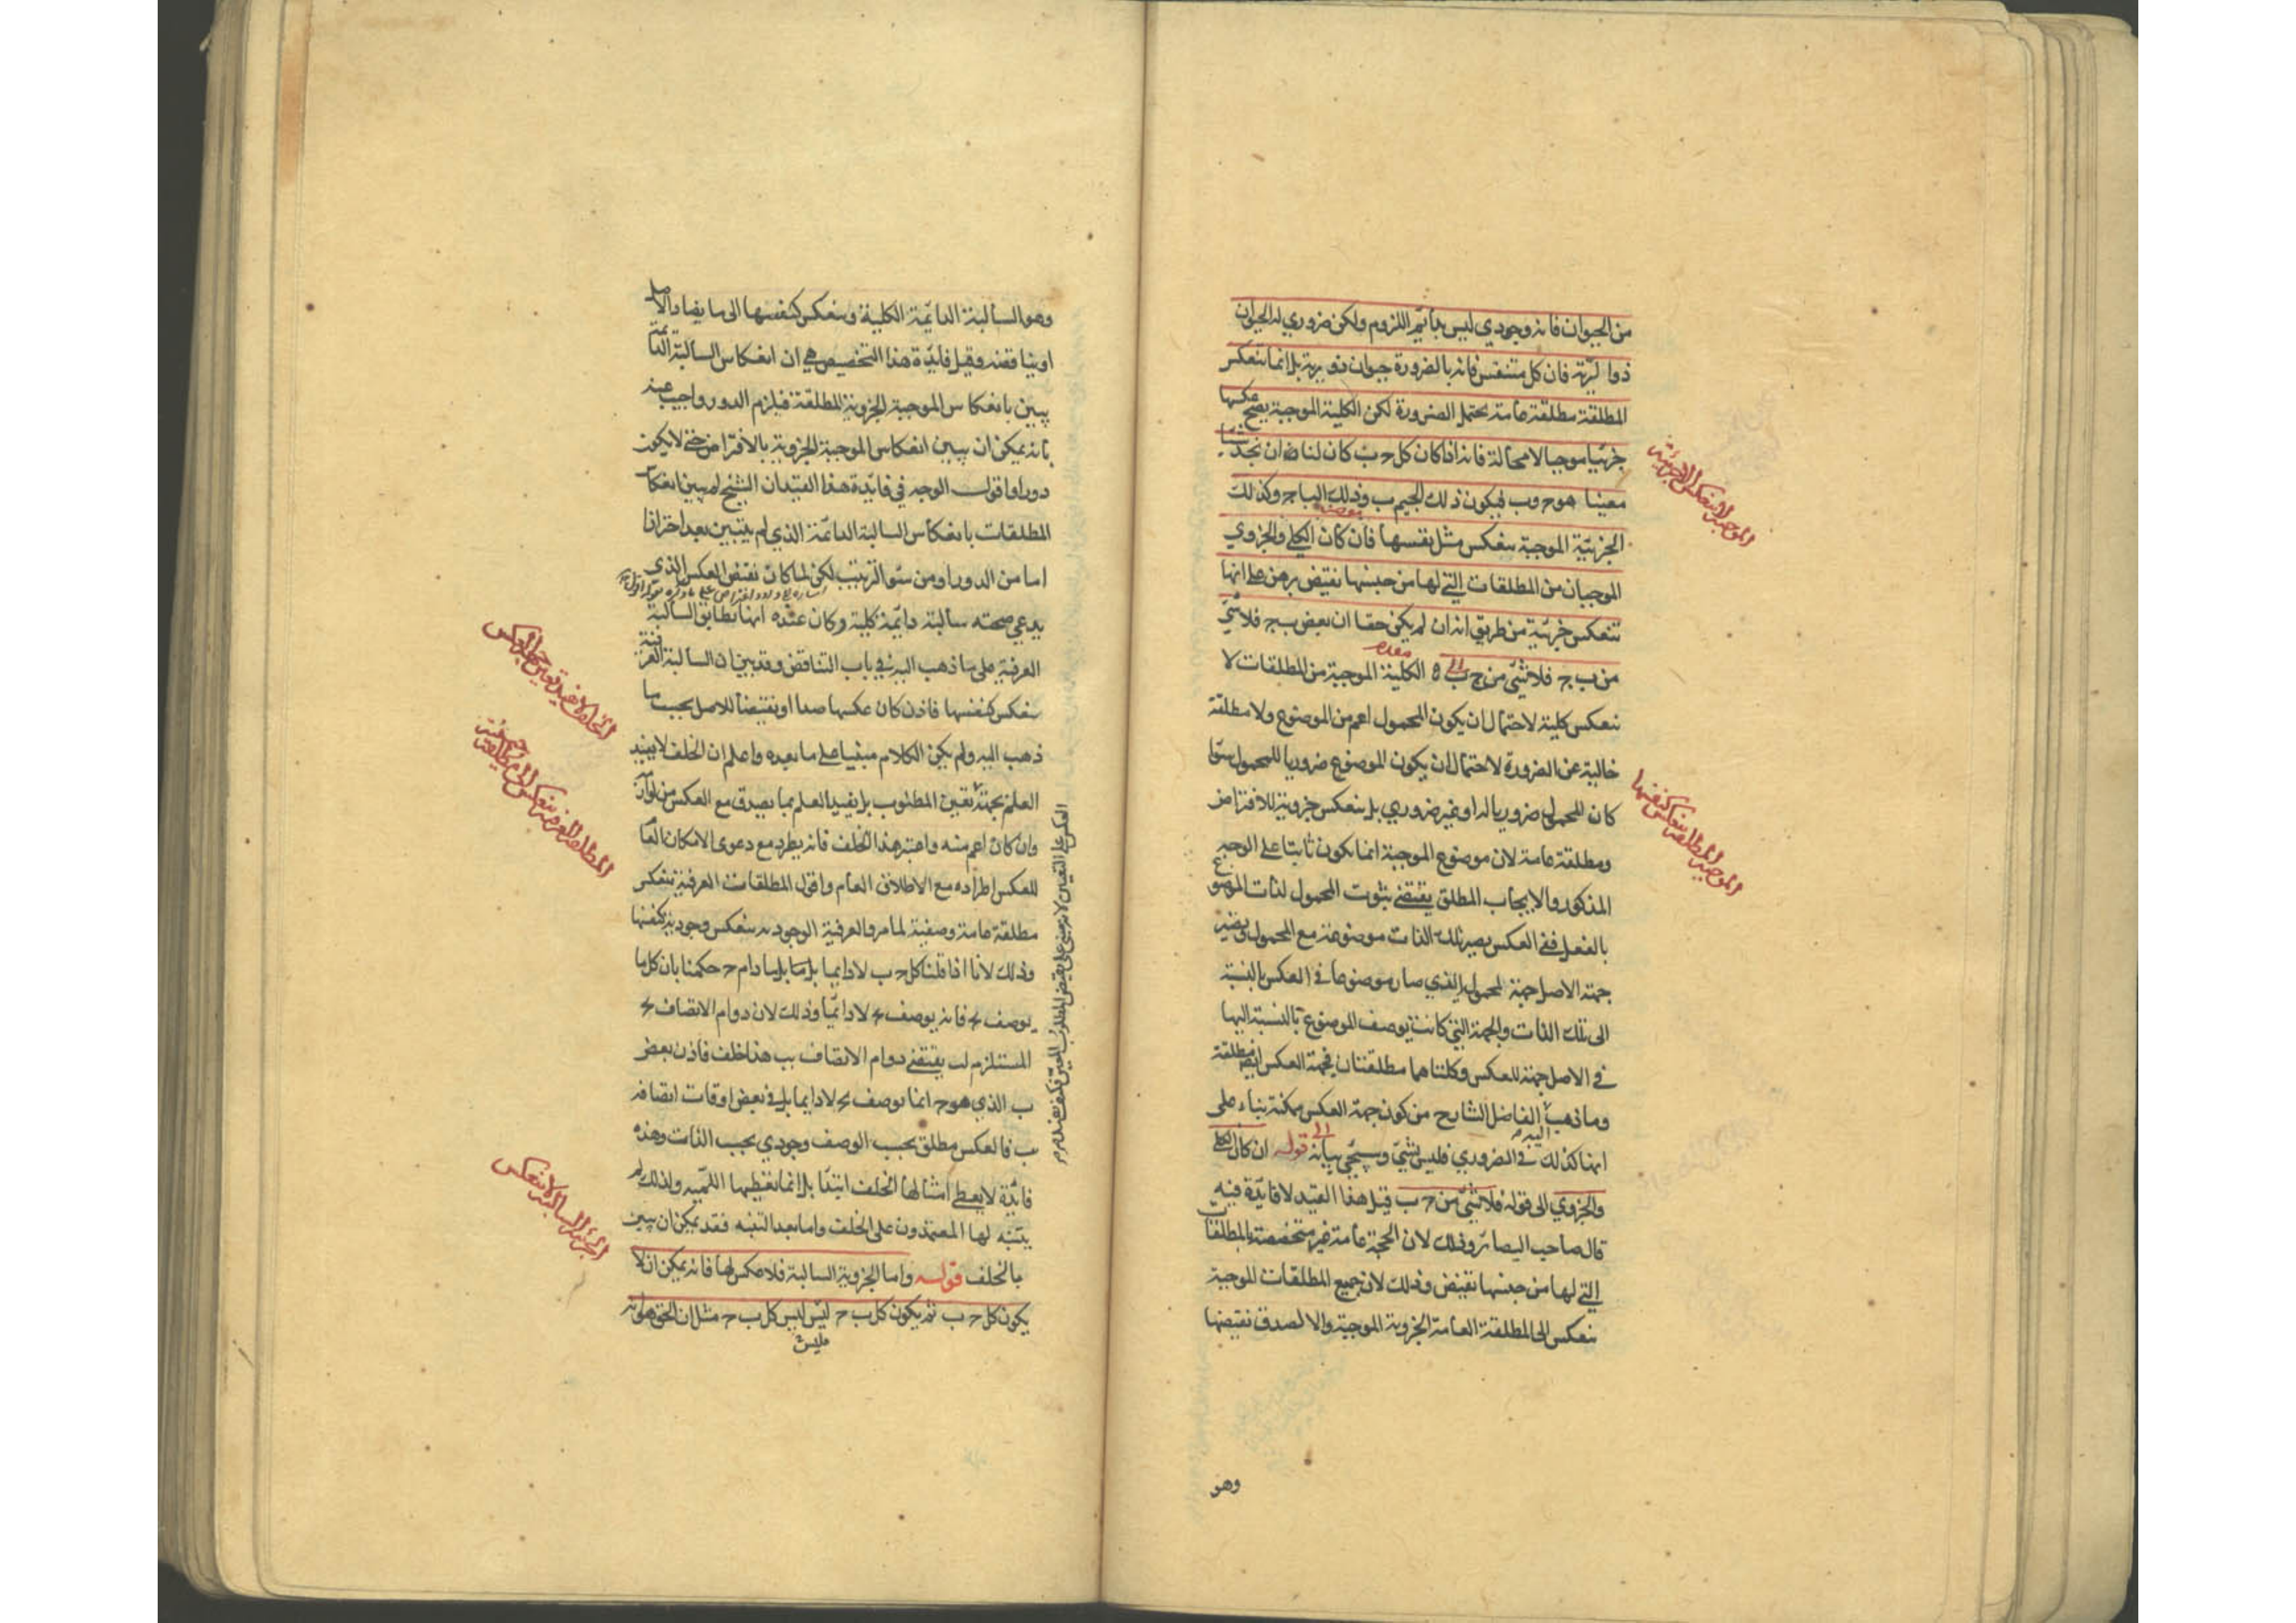 من الحيوان فانه وجودي ليس بدائم اللزوم ولكن ضروري له الحيوان
ذوا لرية فان كل متنفس فانه بالضرورة حيوان ذو رية بل انما تنعكس
المطلقة مطلقة عامة يحتمل الضرورة لكن الكلية الموجبة يصح عكسها
جزئيا موجبا لا محالة فانه اذا كان كل ج ب كان لنا ان نجد شيئا
معينا هو ج وب فيكون ذلك الجيم ب وذلك البا ج وكذلك
الجزئية الموجبة تنعكس مثل نفسها فان كان الكلي والجزوي
الموجبان من المطلقات التي لها من جنسها نقيض برهن على انها
تنعكس جزئية من طريق انه ان لم يكن حقا ان بعض ب ج فلا شئ
من ب ج فلا شئ من ج ب الكلية الموجبة من المطلقات لا
تنعكس كلية لاحتمال ان يكون المحمول اعم من الموضوع ولا مطلقة
خالية عن الضرورة لاحتمال ان يكون الموضوع ضروريا للمحمول سوا
كان المحمول ضروريا له او غير ضروري بل تنعكس جزوية للافتراض
ومطلقة عامة لان موضوع الموجبة انما يكون ثابتا على الوجه
المذكور والايجاب المطلق يقتضي ثبوت المحمول لذات الموضوع
بالفعل ففي العكس يصير تلك الذات موضوعة مع المحمول ويصير
جهة الاصل جهة المحمول الذي صار موضوعا في العكس بالنسبة
الى تلك الذات والجهة التي كانت يوصف الموضوع بالنسبة اليها
في الاصل جهة للعكس وكلتاهما مطلقتان فجهة العكس ايضا مطلقة
وما ذهب اليه الفاضل الشارح من كون جهة العكس ممكنة بناء على
انها كذلك في الضروري فليس بشئ وسيجئ بيانه قوله ان كان الكلي
والجزوي الى قوله فلا شئ من ج ب قيل هذا القيد لا فايدة فيه
قال صاحب البصائر وذلك لان الحجة عامة غير متخصصة بالمطلقات
التي لها من جنسها نقيض وذلك لان جميع المطلقات الموجبة
تنعكس الى المطلقة العامة الجزوية الموجبة والا لصدق نقيضها
وهو
الموجبة لا تنعكس الا جزئية
الموجبة المطلقة تنعكس كنفسها
وهو السالبة الدائمة الكلية وتنعكس كنفسها الى ما يضاد الاصل
او يناقضه وقيل فايدة هذا التخصيص هي ان انعكاس السالبة الدائمة
يبين بانعكاس الموجبة الجزوية المطلقة فيلزم الدور واجيب عنه
بانه يمكن ان يبين انعكاس الموجبة الجزوية بالافتراض حتى لا يكون
دورا واقول الوجه في فايدة هذا القيد ان الشيخ لم يبين انعكاس
المطلقات بانعكاس السالبة الدائمة الذي لم يتبين بعد احترازا
اما من الدور او من سوء الترتيب لكن لما كان نقيض العكس الذي
يدعي صحته سالبة دايمة كلية وكان عنده انها تطابق السالبة
العرفية على ما ذهب اليه في باب التناقض وقد بين ان السالبة العرفية
تنعكس كنفسها فاذن كان عكسها ضدا او نقيضا للاصل بحسب ما
ذهب اليه ولم يكن الكلام مبنيا على ما بعده واعلم ان الخلف لا يفيد
العلم بجهة تعين المطلوب بل يفيد العلم بما يصدق مع العكس من لوازمه
وان كان اعم منه واعتبر هذا الخلف فانه يطرد مع دعوى الامكان العام
للعكس اطراده مع الاطلاق العام واقول المطلقات العرفية تنعكس
مطلقة عامة وصفية لما مر والعرفية الوجودية تنعكس وجودية كنفسها
وذلك لانا اذا قلنا كل ج ب لا دايما بل ما دام ج حكمنا بان كل ما
يوصف بج فانه يوصف بج لا دائما وذلك لان دوام الاتصاف بج
المستلزم لب يقتضي دوام الاتصاف بب هذا خلف فاذن بعض
ب الذي هو ج انما يوصف بج لا دايما بل في بعض اوقات اتصافه
بب فالعكس مطلق بحسب الوصف وجودي بحسب الذات وهذه
فائدة لا يعطي امثالها الخلف ابتدا بل انما تعطيها اللمية ولذلك لم
يتنبه لها المعتمدون على الخلف واما بعد التنبه فقد يمكن ان يبين
بالخلف قوله واما الجزوية السالبة فلا عكس لها فانه يمكن ان لا
يكون كل ج ب ثم يكون كل ب ج ليس ليس كل ب ج مثل ان الحق هو انه
فليس
الخلف لا يفيد تعين جهة العكس
المطلقة العرفية تنعكس الى مطلقة وصفية
الجزئية السالبة لا تنعكس